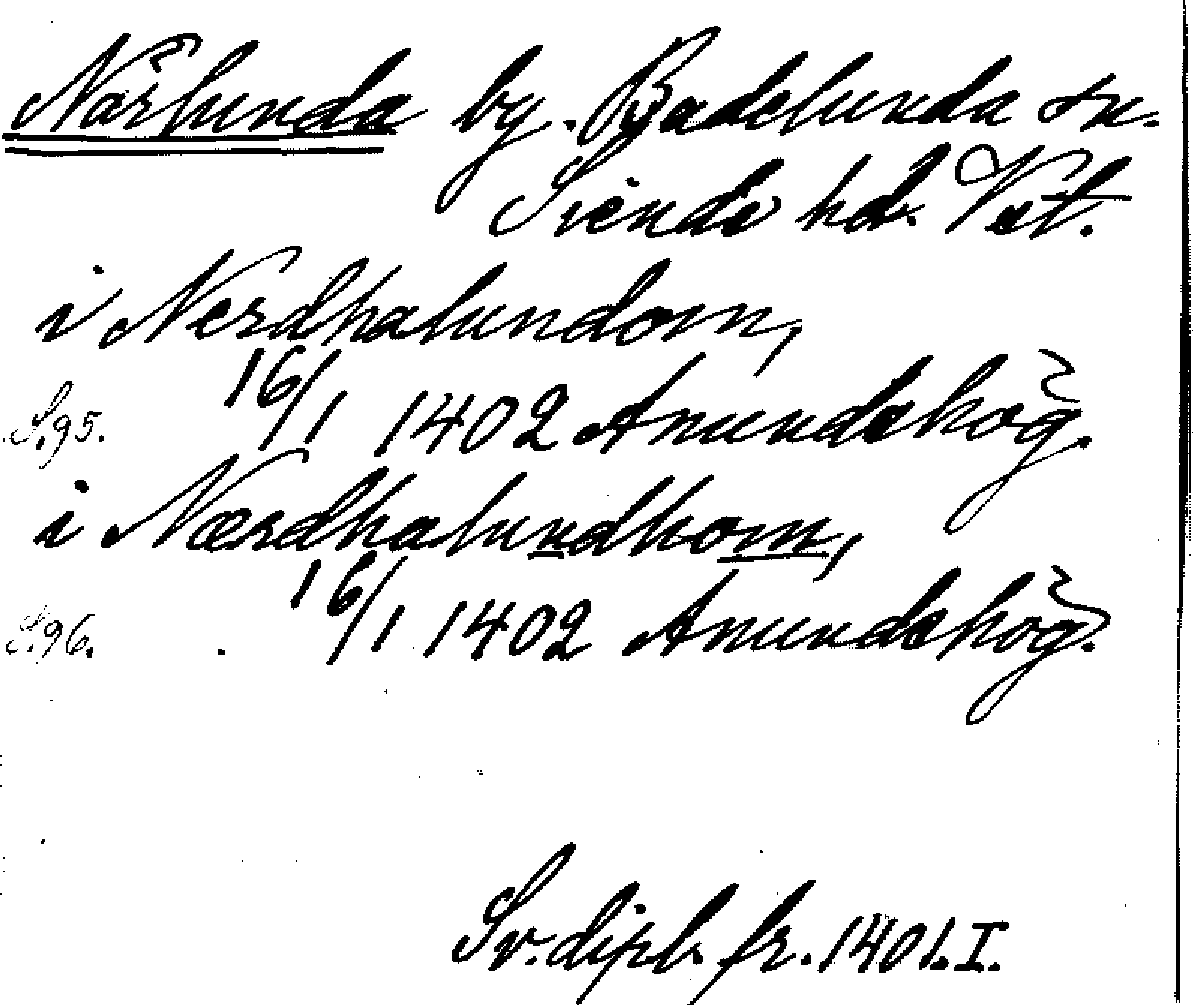 Närlunda by. Badelunda sn.
Siende hd. Vstl.
i Nerdhalundom,
S.95. 16/1 1402 Amundshög.
i Nærdhalundhom,
S.96. 16/1 1402 Amundshög.
Sv. dipl. fr. 1401. I.